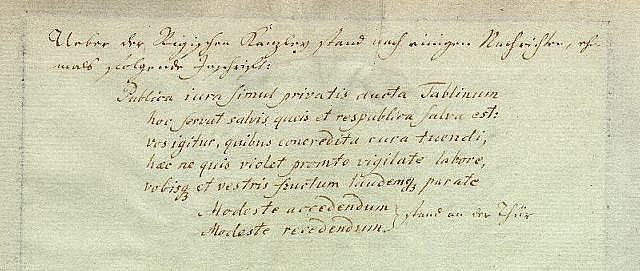 Ueber der Rigischen Kanzley stand nach einigen Nachrichten, ehe-
mals folgende Inschrift:
Publica iura simul privatis aucta Tablinum
hoc servat salvis queis et respublica salva est:
vos igitur, quibus concredita cura tuendi,
haec ne quis violet promto vigilate labore,
vobisq et vestris fructum laudemq parate
Modeste accedendum } stand an der Thür
Modeste recedendum.